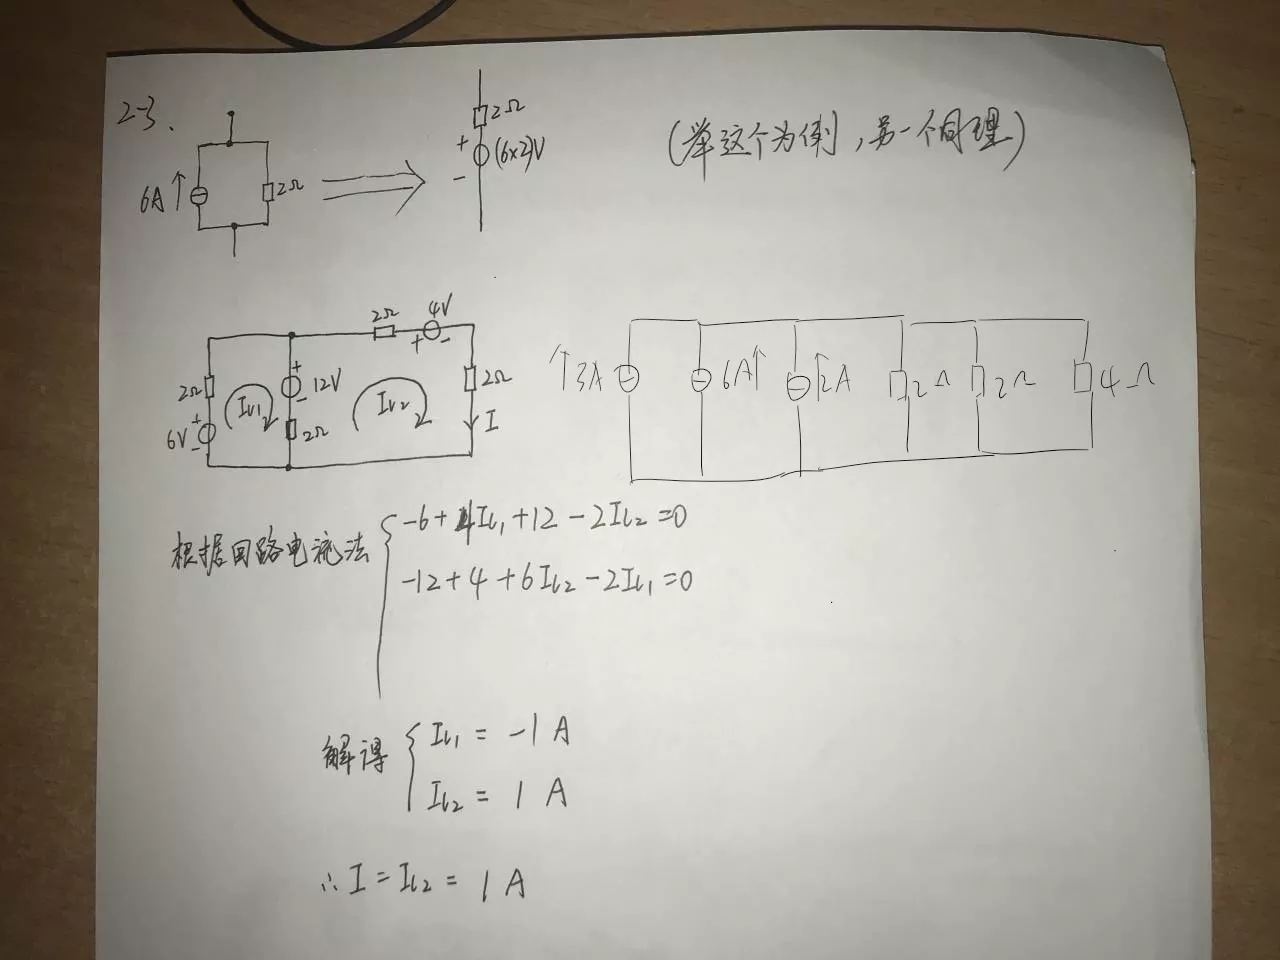 2-3、
6A
2Ω
2Ω
(6×2)V
+
-
(举这个为例,另一个同理)
2Ω
4V
+ -
2Ω
+
12V
-
2Ω
I
2Ω
6V
+
-
IL1
IL2
3A
6A
2A
2Ω
2Ω
4Ω
根据回路电流法
-6+4IL1+12-2IL2=0
-12+4+6IL2-2IL1=0
解得
IL1 = -1 A
IL2 = 1 A
∴ I = IL2 = 1 A